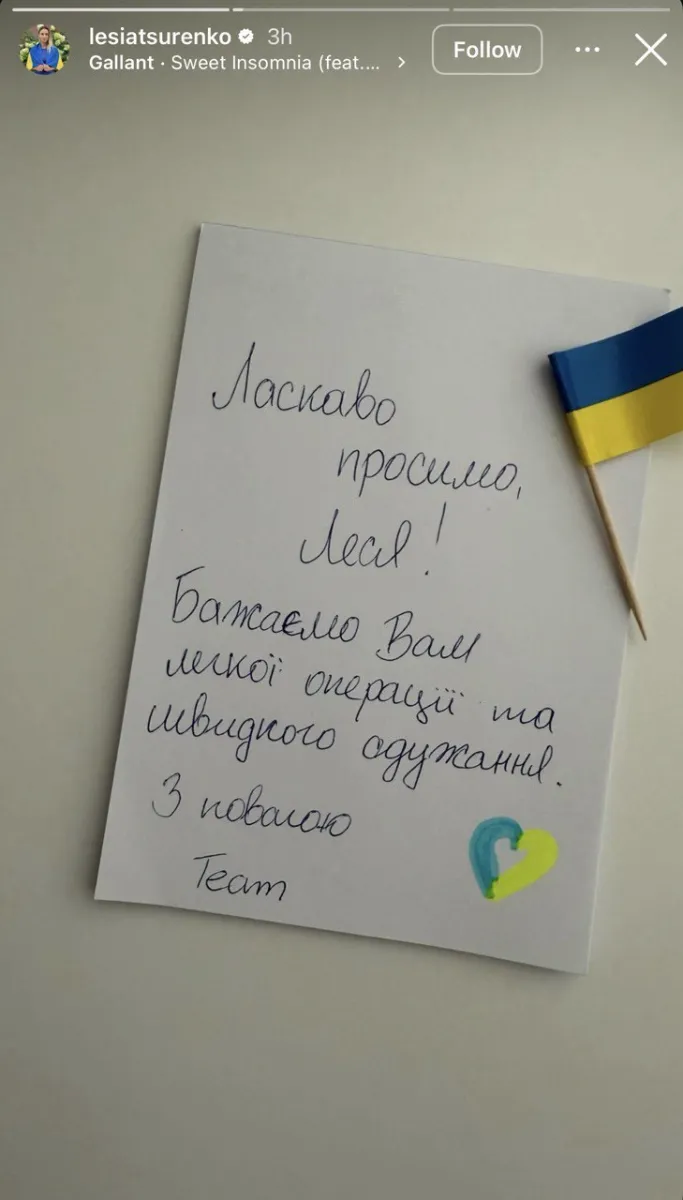 lesiatsurenko 3h
Gallant · Sweet Insomnia (feat....
Follow
Ласкаво
просимо,
Леся!
Бажаємо Вам
легкої операції та
швидкого одужання.
З повагою
Team